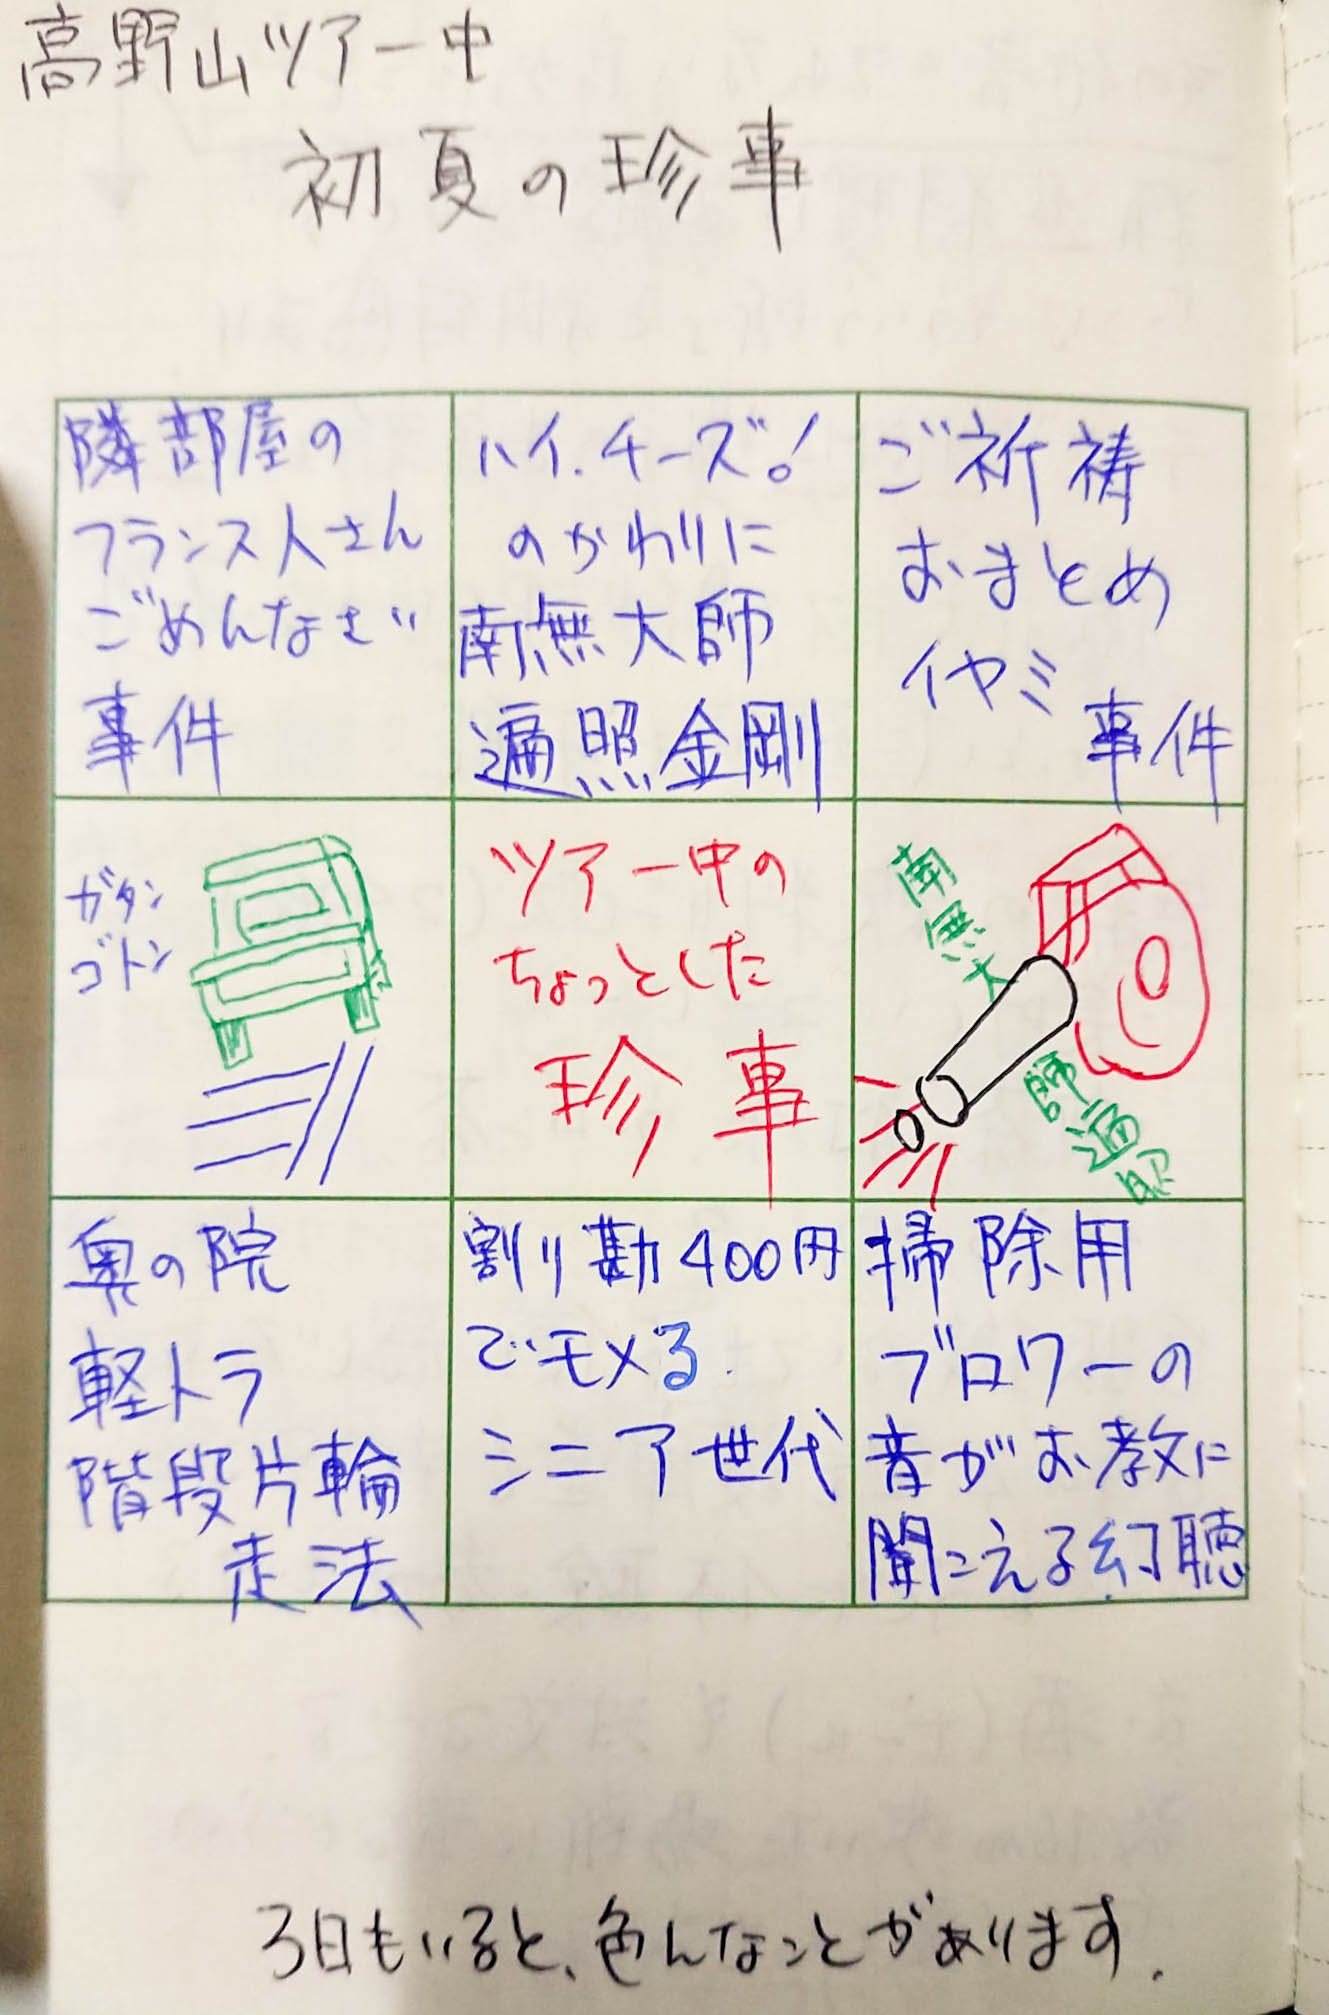 高野山ツアー中
初夏の珍事
隣部屋の
フランス人さん
ごめんなさい
事件
ハイ、チーズ!
のかわりに
南無大師
遍照金剛
ご祈祷
おまとめ
イヤミ
事件
ガタン
ゴトン
ツアー中の
ちょっとした
珍事
南無大
師遍照
奥の院
軽トラ
階段片輪
走法
割り勘400円
でモメる
シニア世代
掃除用
ブロワーの
音がお教に
聞こえる幻聴
3日もいると、色んなことがあります.